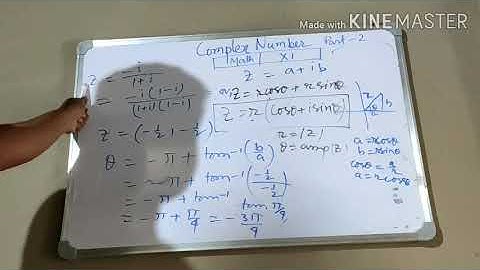 Made with KINEMASTER
Complex Number Part-2
Math XI
z = i/1+i
z = a+ib
= i(1-i)/(1+i)(1-i)
z = r cosθ + r sinθ
z = r(cosθ+isinθ)
r
b
θ
z = (-1/2, -1/2)
r = |z|
θ = amp(z)
a = r cosθ
b = r sinθ
θ = -π + tan⁻¹(b/a)
cosθ = a/r
a = r cosθ
= -π + tan⁻¹(-1/2/-1/2)
= -π + tan⁻¹ tan π/4
= -π + π/4 = -3π/4